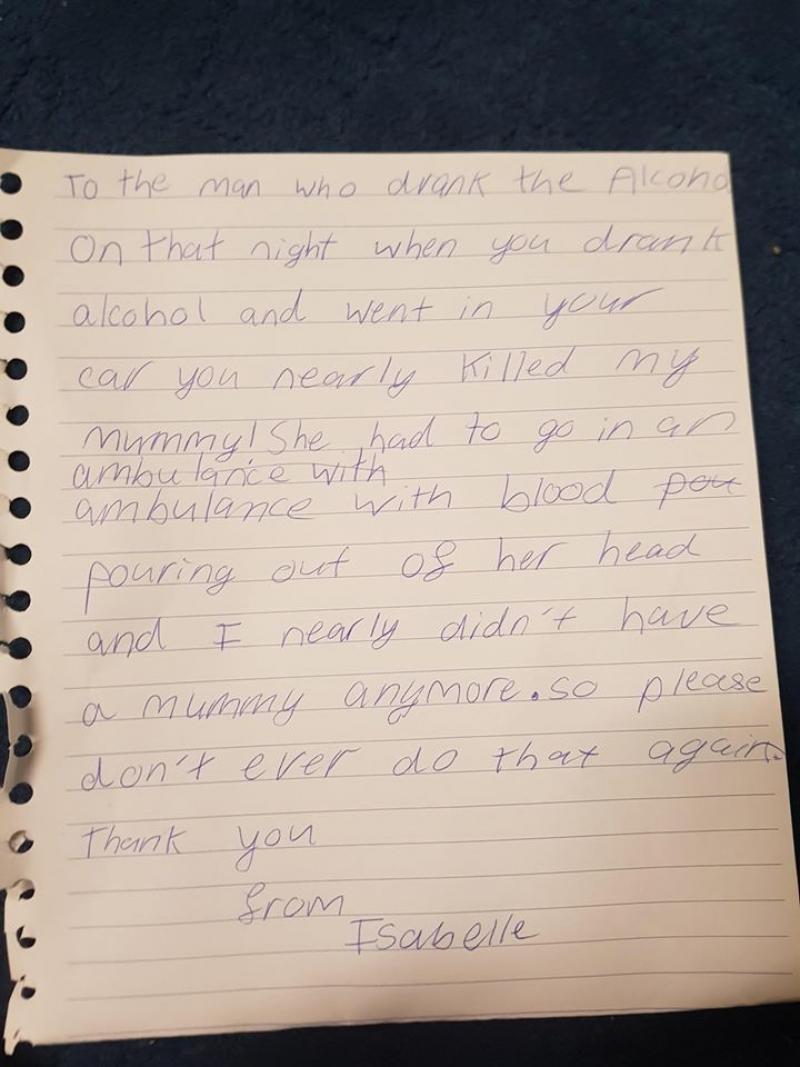 To the man who drank the Alcoho
On that night when you drank
alcohol and went in your
car you nearly killed my
mummy! She had to go in an
ambulance with
ambulance with blood pou
pouring out of her head
and I nearly didn't have
a mummy anymore. so please
don't ever do that again.
Thank you
from
Isabelle